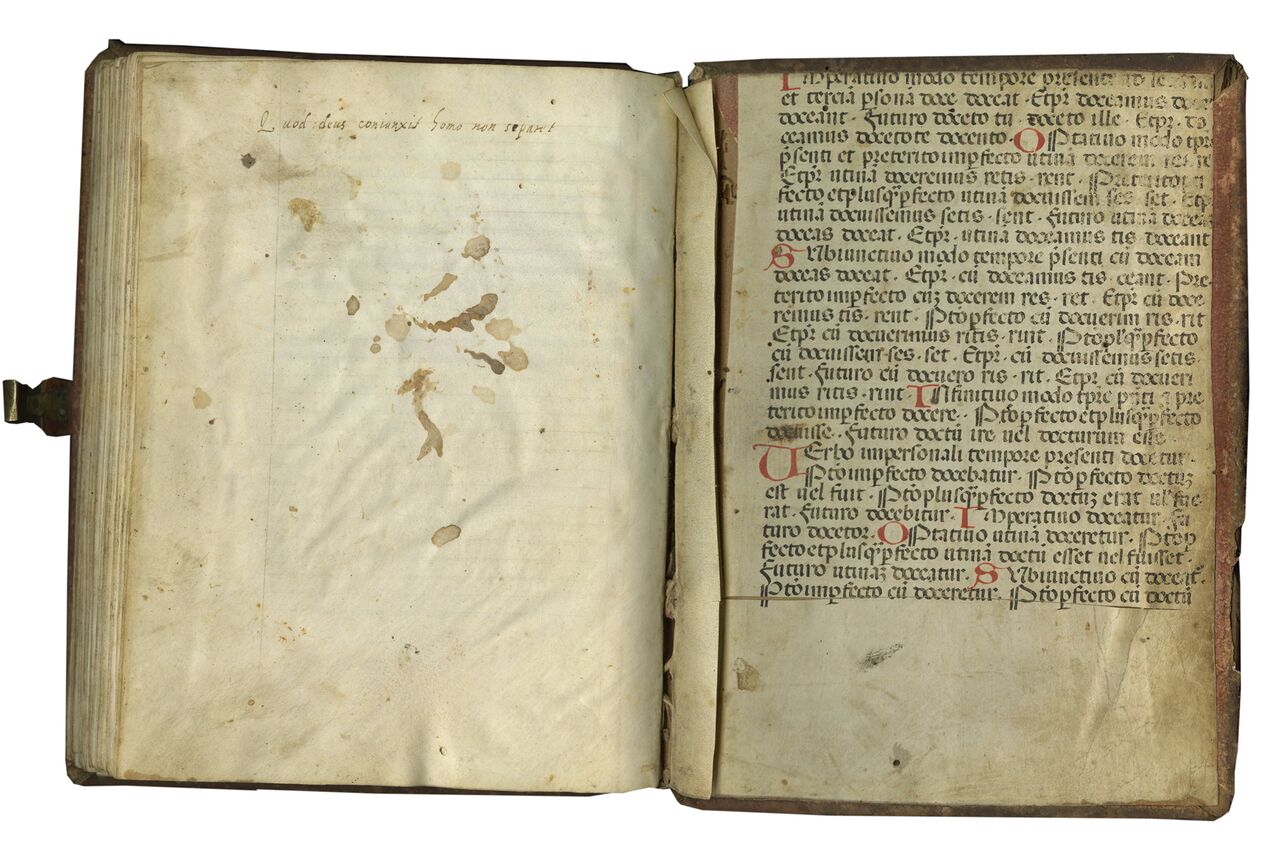 Quod deus coniunxit homo non separet
Imperativo modo tempore presenti
et terciã psonã doce doceat · Etpr̃ doceamus
doceant · Futuro doceto tu · doceto ille · Etpr̃ · do
ceamus docetote docento · Optativo modo tpr̃
p̃senti et preterito imp̱fecto utinã docerem
Etpr̃ utinã doceremus retis · rent ·
fecto etplusq̃p̱fecto utinã docuissem ses · set ·
utinã docuissemus setis · sent · Futuro utinã
doceas doceat · Etpr̃ · utinã doceamus tis doceant
Subiunctivo modo tempore p̃senti cũ doceam
doceas doceat · Etpr̃ · cũ doceamus tis · ceant · Pre-
terito imp̱fecto cuz docerem res · ret · Etpr̃ cũ doce-
remus tis · rent · Ptõp̱fecto cũ docuerim ris · rit
Etpr̃ cũ docuerimus ritis · rint · Ptõplq̃p̱fecto
cũ docuissem · ses · set · Etpr̃ · cũ docuissemus setis
sent · Futuro cũ docuero ris · rit · Etpr̃ cũ docueri
mus ritis · rint · Infinitivo modo tpr̃e pñti a pre
terito imp̱fecto docere · Ptõp̱fecto etplusq̃p̱fecto
docuisse · Futuro doctũ ire uel docturum esse
Verbo impersonali tempore presenti docetur ·
Ptõimp̱fecto docebatur · Ptõp̱fecto doctuz
est uel fuit · Ptõplusq̃p̱fecto doctuz erat ul̃ fue
rat · Futuro docebitur · Imperativo doceatur · fu
turo docetor · Optativo utinã doceretur · Ptõp̱
fecto etplusq̃p̱fecto utinã doctũ esset uel fuisset ·
Futuro utinaz doceatur · Subiunctivo cũ doceat᷑ ·
Ptõimp̱fecto cũ doceretur · Ptõp̱fecto cũ doctũ